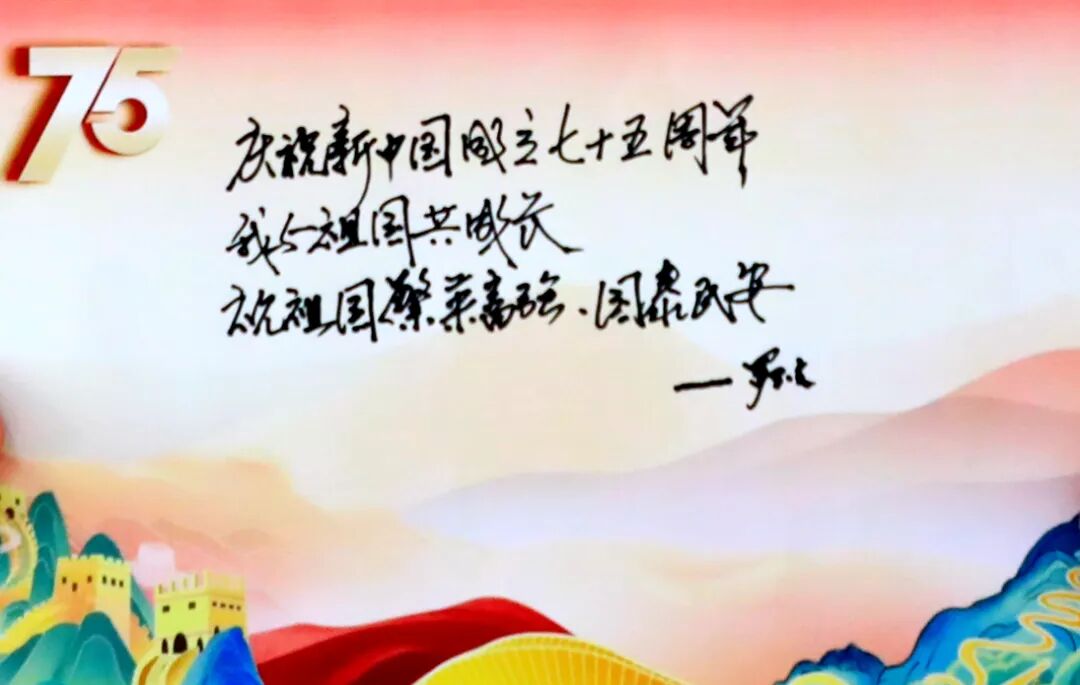 75
庆祝新中国成立七十五周年
我与祖国共成长
祝祖国繁荣富强、国泰民安